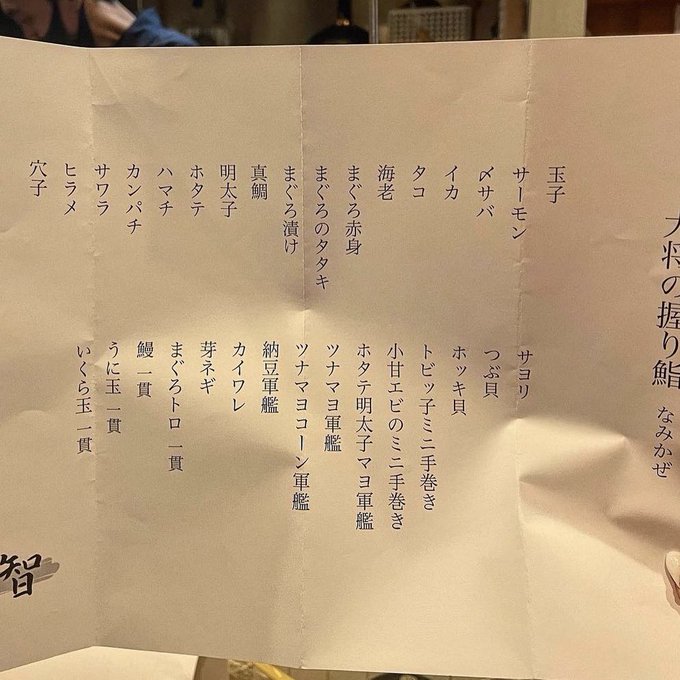 大将の握り鮨 なみかぜ
玉子
サーモン
〆サバ
イカ
タコ
海老
まぐろ赤身
まぐろのタタキ
まぐろ漬け
真鯛
明太子
ホタテ
ハマチ
カンパチ
サワラ
ヒラメ
穴子
サヨリ
つぶ貝
ホッキ貝
トビッ子ミニ手巻き
小甘エビのミニ手巻き
ホタテ明太子マヨ軍艦
ツナマヨ軍艦
ツナマヨコーン軍艦
納豆軍艦
カイワレ
芽ネギ
まぐろトロ 一貫
鰻 一貫
うに玉 一貫
いくら玉 一貫
智